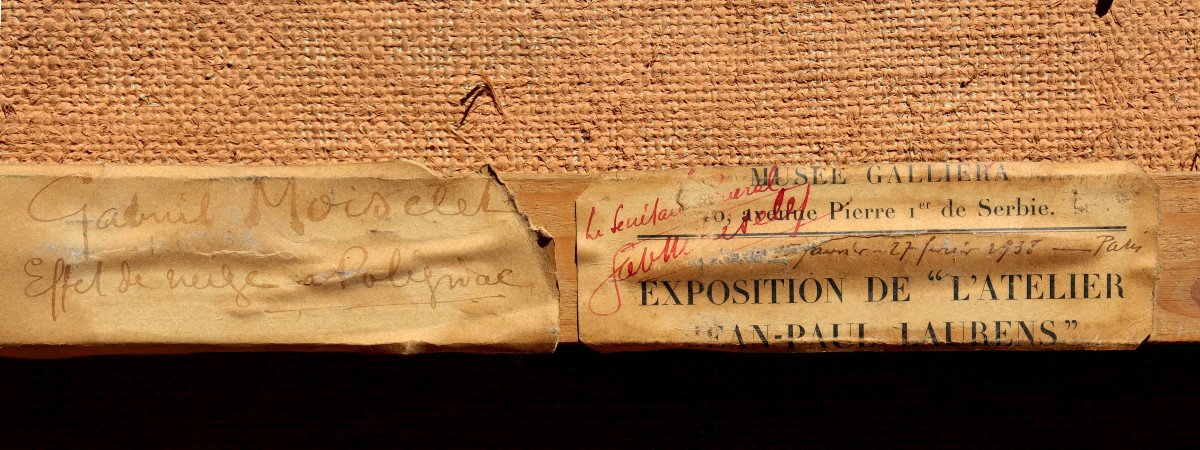 Gabriel Moiselet
Effet de neige a Polignac
MUSÉE GALLIERA
10, avenue Pierre 1er de Serbie.
Le Secrétaire Général
Gabriel Moiselet
Janvier - 27 février 1938 — Paris
EXPOSITION DE "L'ATELIER
JEAN-PAUL LAURENS"